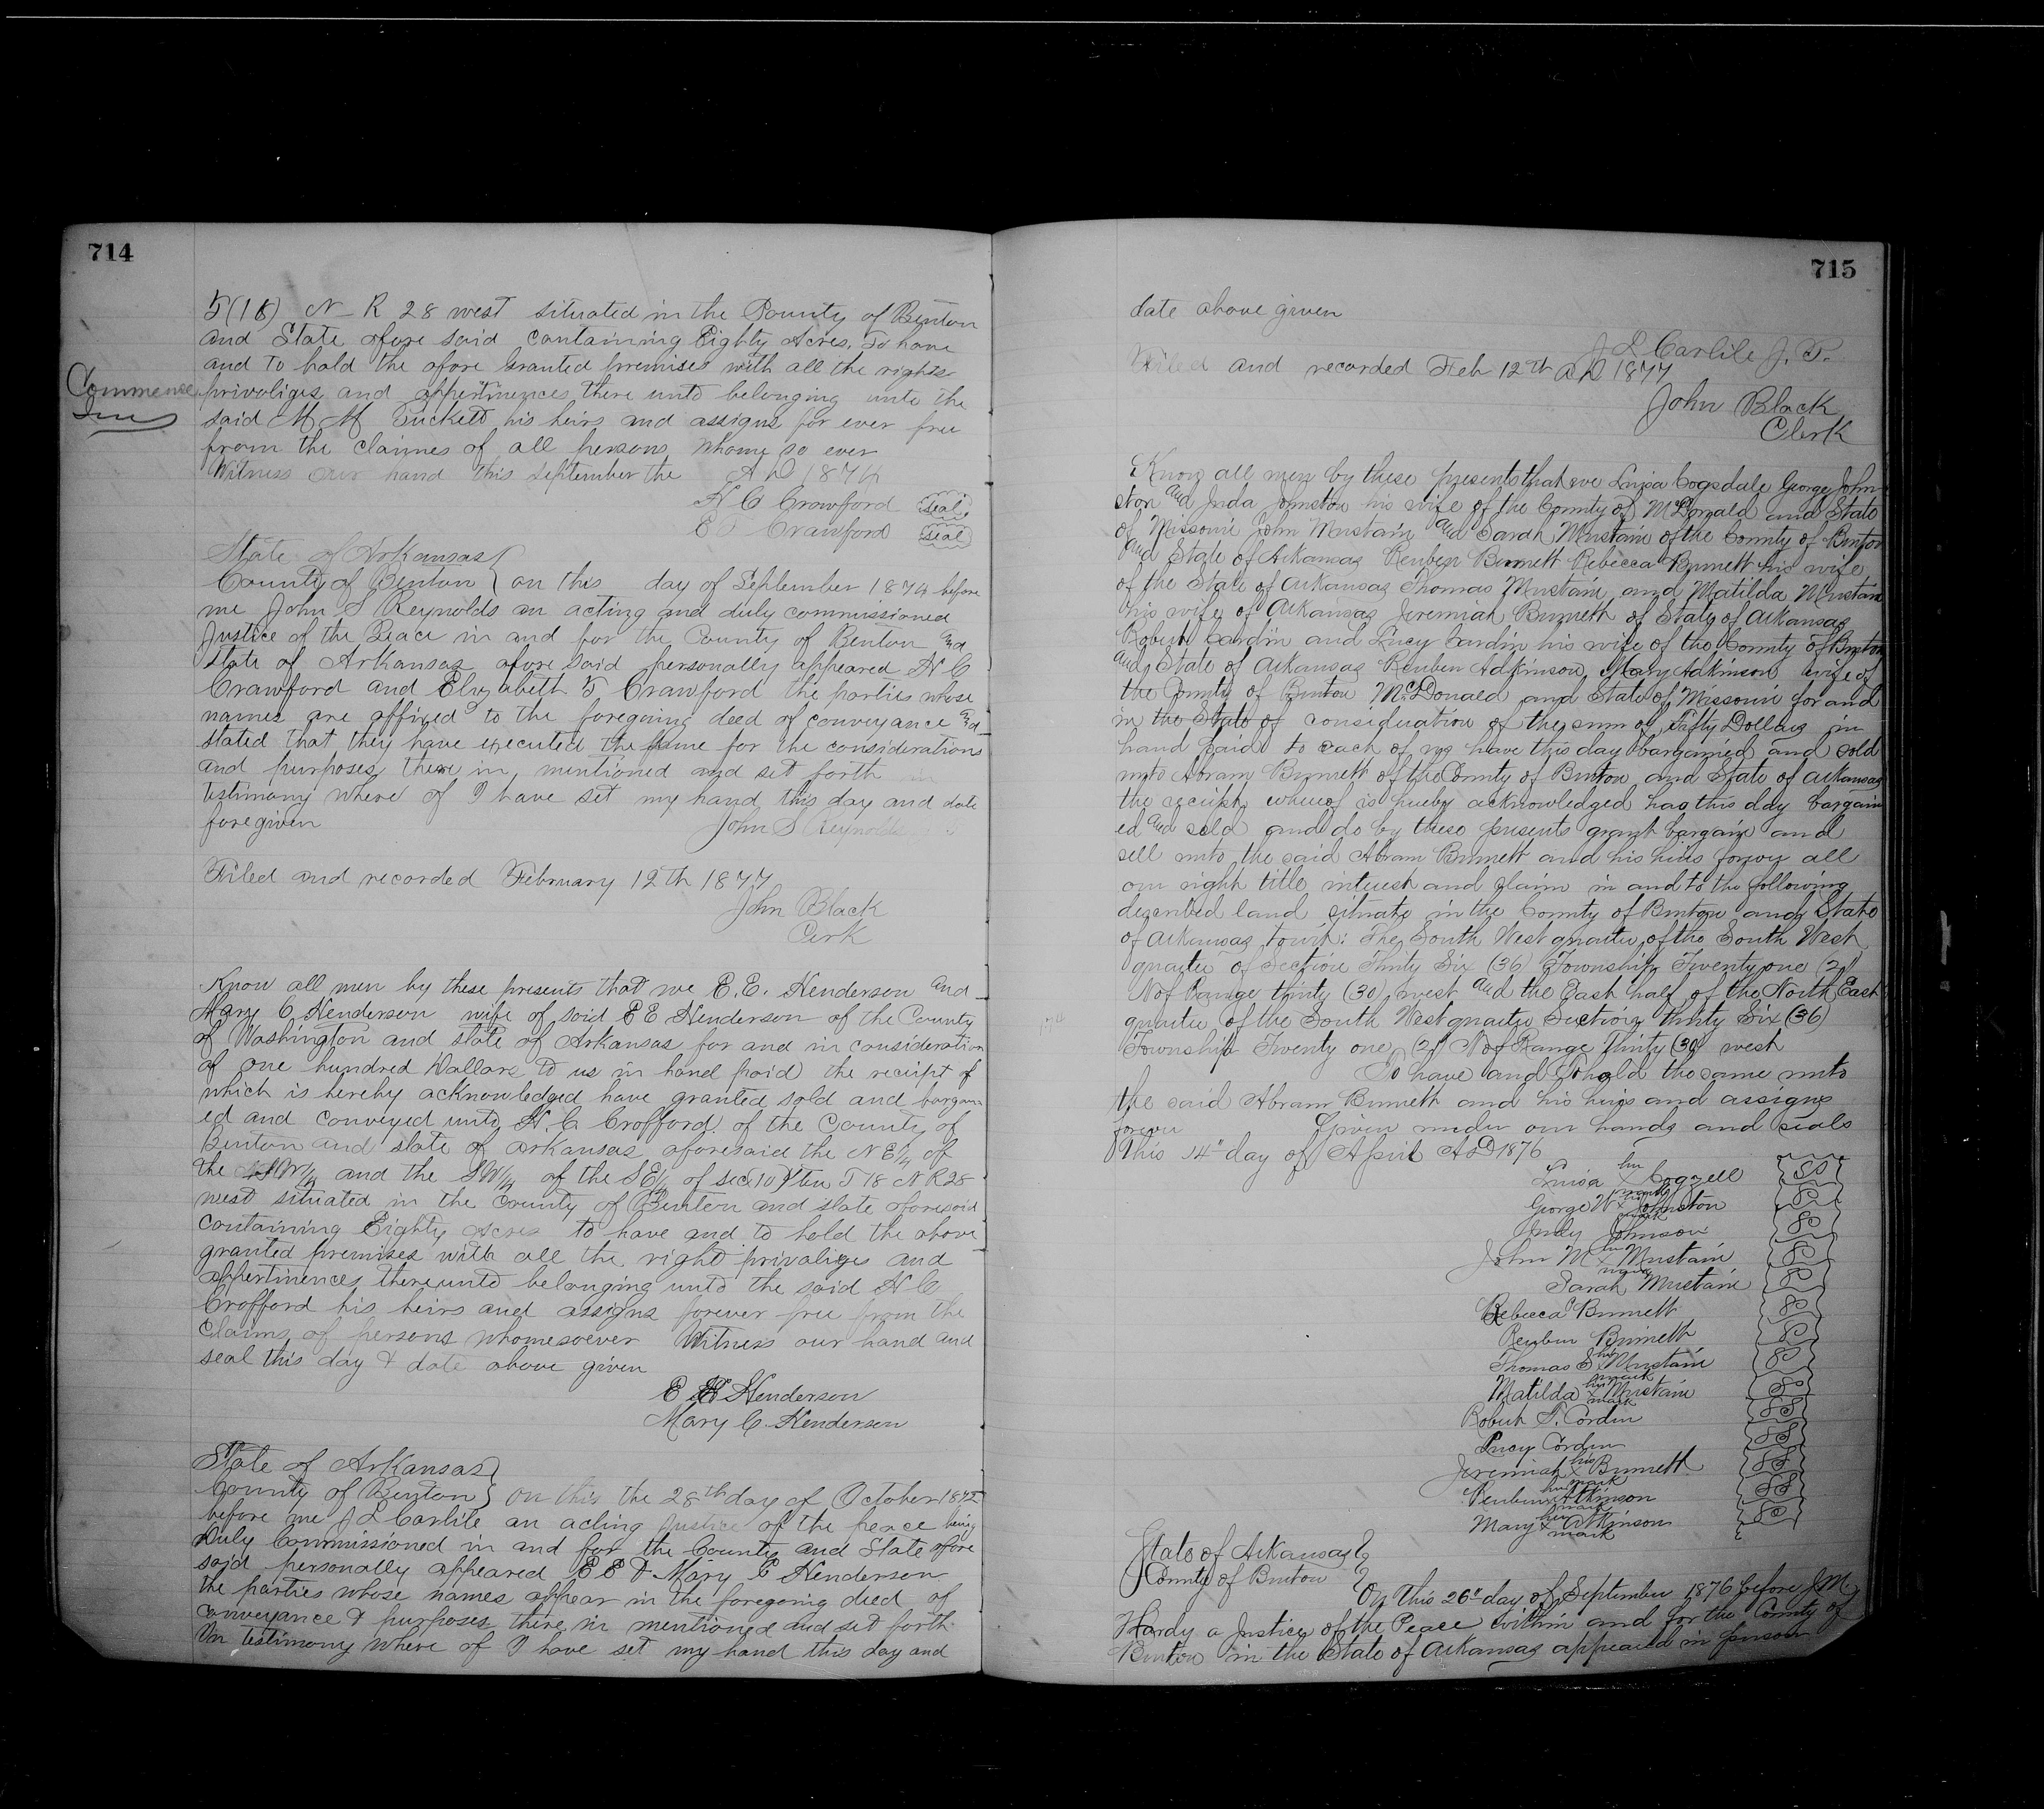 714
T(18) N R 28 west situated in the County of Benton
and State afore said containing Eighty Acres, To have
and to hold the afore Granted premises with all the rights
Commence
privoliges and appertinences there unto belonging unto the
said M M Puckett his heirs and assigns for ever free
from the claimes of all persons whome so ever
Witness our hand this September the A D 1874
H C Crawford seal
E T Crawford seal
State of Arkansas
County of Benton } on this day of September 1874 before
me John S Reynolds an acting and duly commissioned
Justice of the Peace in and for the County of Benton and
State of Arkansas afore said personally appeared H C
Crawford and Elizabeth T Crawford the parties whose
names are affixed to the foregoing deed of conveyance and
stated that they have executed the same for the considerations
and purposes there in mentioned and set forth in
testimony where of I have set my hand this day and date
foregiven John S Reynolds
Filed and recorded February 12th 1877
John Black
Cerk
Know all men by these presents that we E. E. Henderson and
Mary C Henderson wife of said E E Henderson of the County
of Washington and state of Arkansas for and in consideration
of one hundred Dollars to us in hand paid the receipt of
which is hereby acknowledged have granted sold and bargain
ed and conveyed unto H. C. Crofford of the County of
Benton and state of Arkansas aforesaid the N E 1/4 of
the SW 1/4 and the SW 1/4 of the S E 1/4 of sec (10) ten T 18 N R 28
west situated in the County of Benton and state aforesaid
containing Eighty Acres to have and to hold the above
granted premises with all the right privaliges and
appertinences thereunto belonging unto the said H C
Crofford his heirs and assigns forever free from the
Claims of persons whomesoever Witness our hand and
seal this day & date above given
E E Henderson
Mary C. Henderson
State of Arkansas
County of Benton } on this the 28th day of October 1872
before me J L Carlile an acting Justice of the peace being
Duly Commissioned in and for the County and State afore
said personally appeared E E & Mary C Henderson
the parties whose names appear in the foregoing deed of
conveyance & purposes there in mentioned and set forth
In testimony where of I have set my hand this day and
715
date above given
J L Carlile J. P.
Filed and recorded Feb 12th AD 1877
John Black
Clerk
Know all men by these presents that we Luisa Cogsdale George John
ston and Juda Johnston his wife of the County of McDonald and State
of Missouri John Mustain and Sarah Mustain of the County of Benton
and State of Arkansas Reuben Burnett Rebecca Burnett his wife
of the State of Arkansas Thomas Mustain and Matilda Mustain
his wife of Arkansas Jeremiah Burnett of State of Arkansas
Robert Cardin and Lucy Cardin his wife of the County of Benton
and State of Arkansas Reuben Adkinson Mary Adkinson wife of
the County of Benton McDonald and State of Missouri for and
in the State of consideration of the sum of Fifty Dollars in
hand paid to each of us have this day bargained and sold
unto Abram Burnett of the County of Benton and State of Arkansas
the receipt whereof is hereby acknowledged has this day bargain
ed and sold and do by these presents grant bargain and
sell unto the said Abram Burnett and his heirs forever all
our right title interest and claim in and to the following
described land situate in the County of Benton and State
of Arkansas towit: The South West quarter of the South West
quarter of Section Thirty Six (36) Township Twenty one (21)
N of Range thirty (30) west and the East half of the North East
quarter of the South West quarter Section thirty Six (36)
Township Twenty one (21) N of Range thirty (30) west
To have and to hold the same unto
the said Abram Burnett and his heirs and assigns
forever Given under our hands and seals
This 14" day of April AD 1876
Luisa her x mark Cogzell
George W his x mark Johnston
Judy Johnson
John M his x mark Mustain
Sarah Mustain
Rebecca Burnett
Reuben Burnett
Thomas S his x mark Mustain
Matilda her x mark Mustain
Robert T. Cordin
Lucy Cordin
Jeremiah his x mark Burnett
Reuben his x mark Atkinson
Mary her x mark Atkinson
State of Arkansas
County of Benton
On This 26" day of September 1876 before J M
Hardy a Justice of the Peace within and for the County of
Benton in the State of Arkansas appeared in person